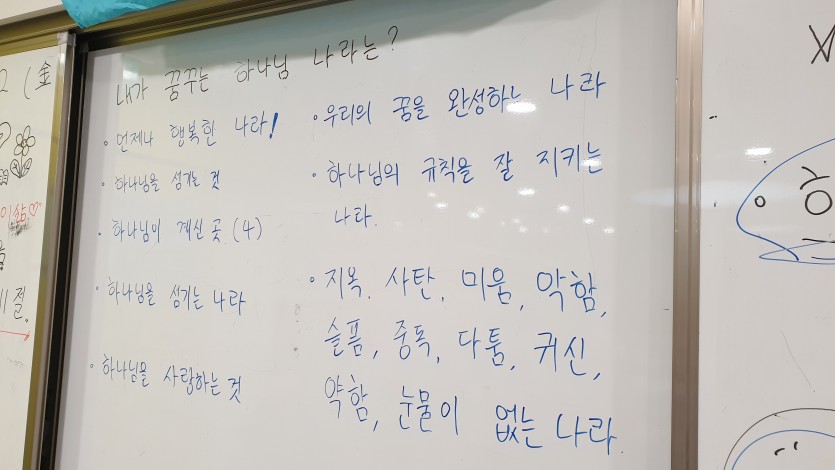 내가 꿈꾸는 하나님 나라는?
· 언제나 행복한 나라!
· 하나님을 섬기는 것
· 하나님이 계신 곳. (4)
· 하나님을 섬기는 나라
· 하나님을 사랑하는 것
· 우리의 꿈을 완성하는 나라
· 하나님의 규칙을 잘 지키는
나라.
· 지옥. 사탄. 미움, 악함,
슬픔, 중독, 다툼, 귀신,
약함, 눈물이 없는 나라.
2 (金
절.